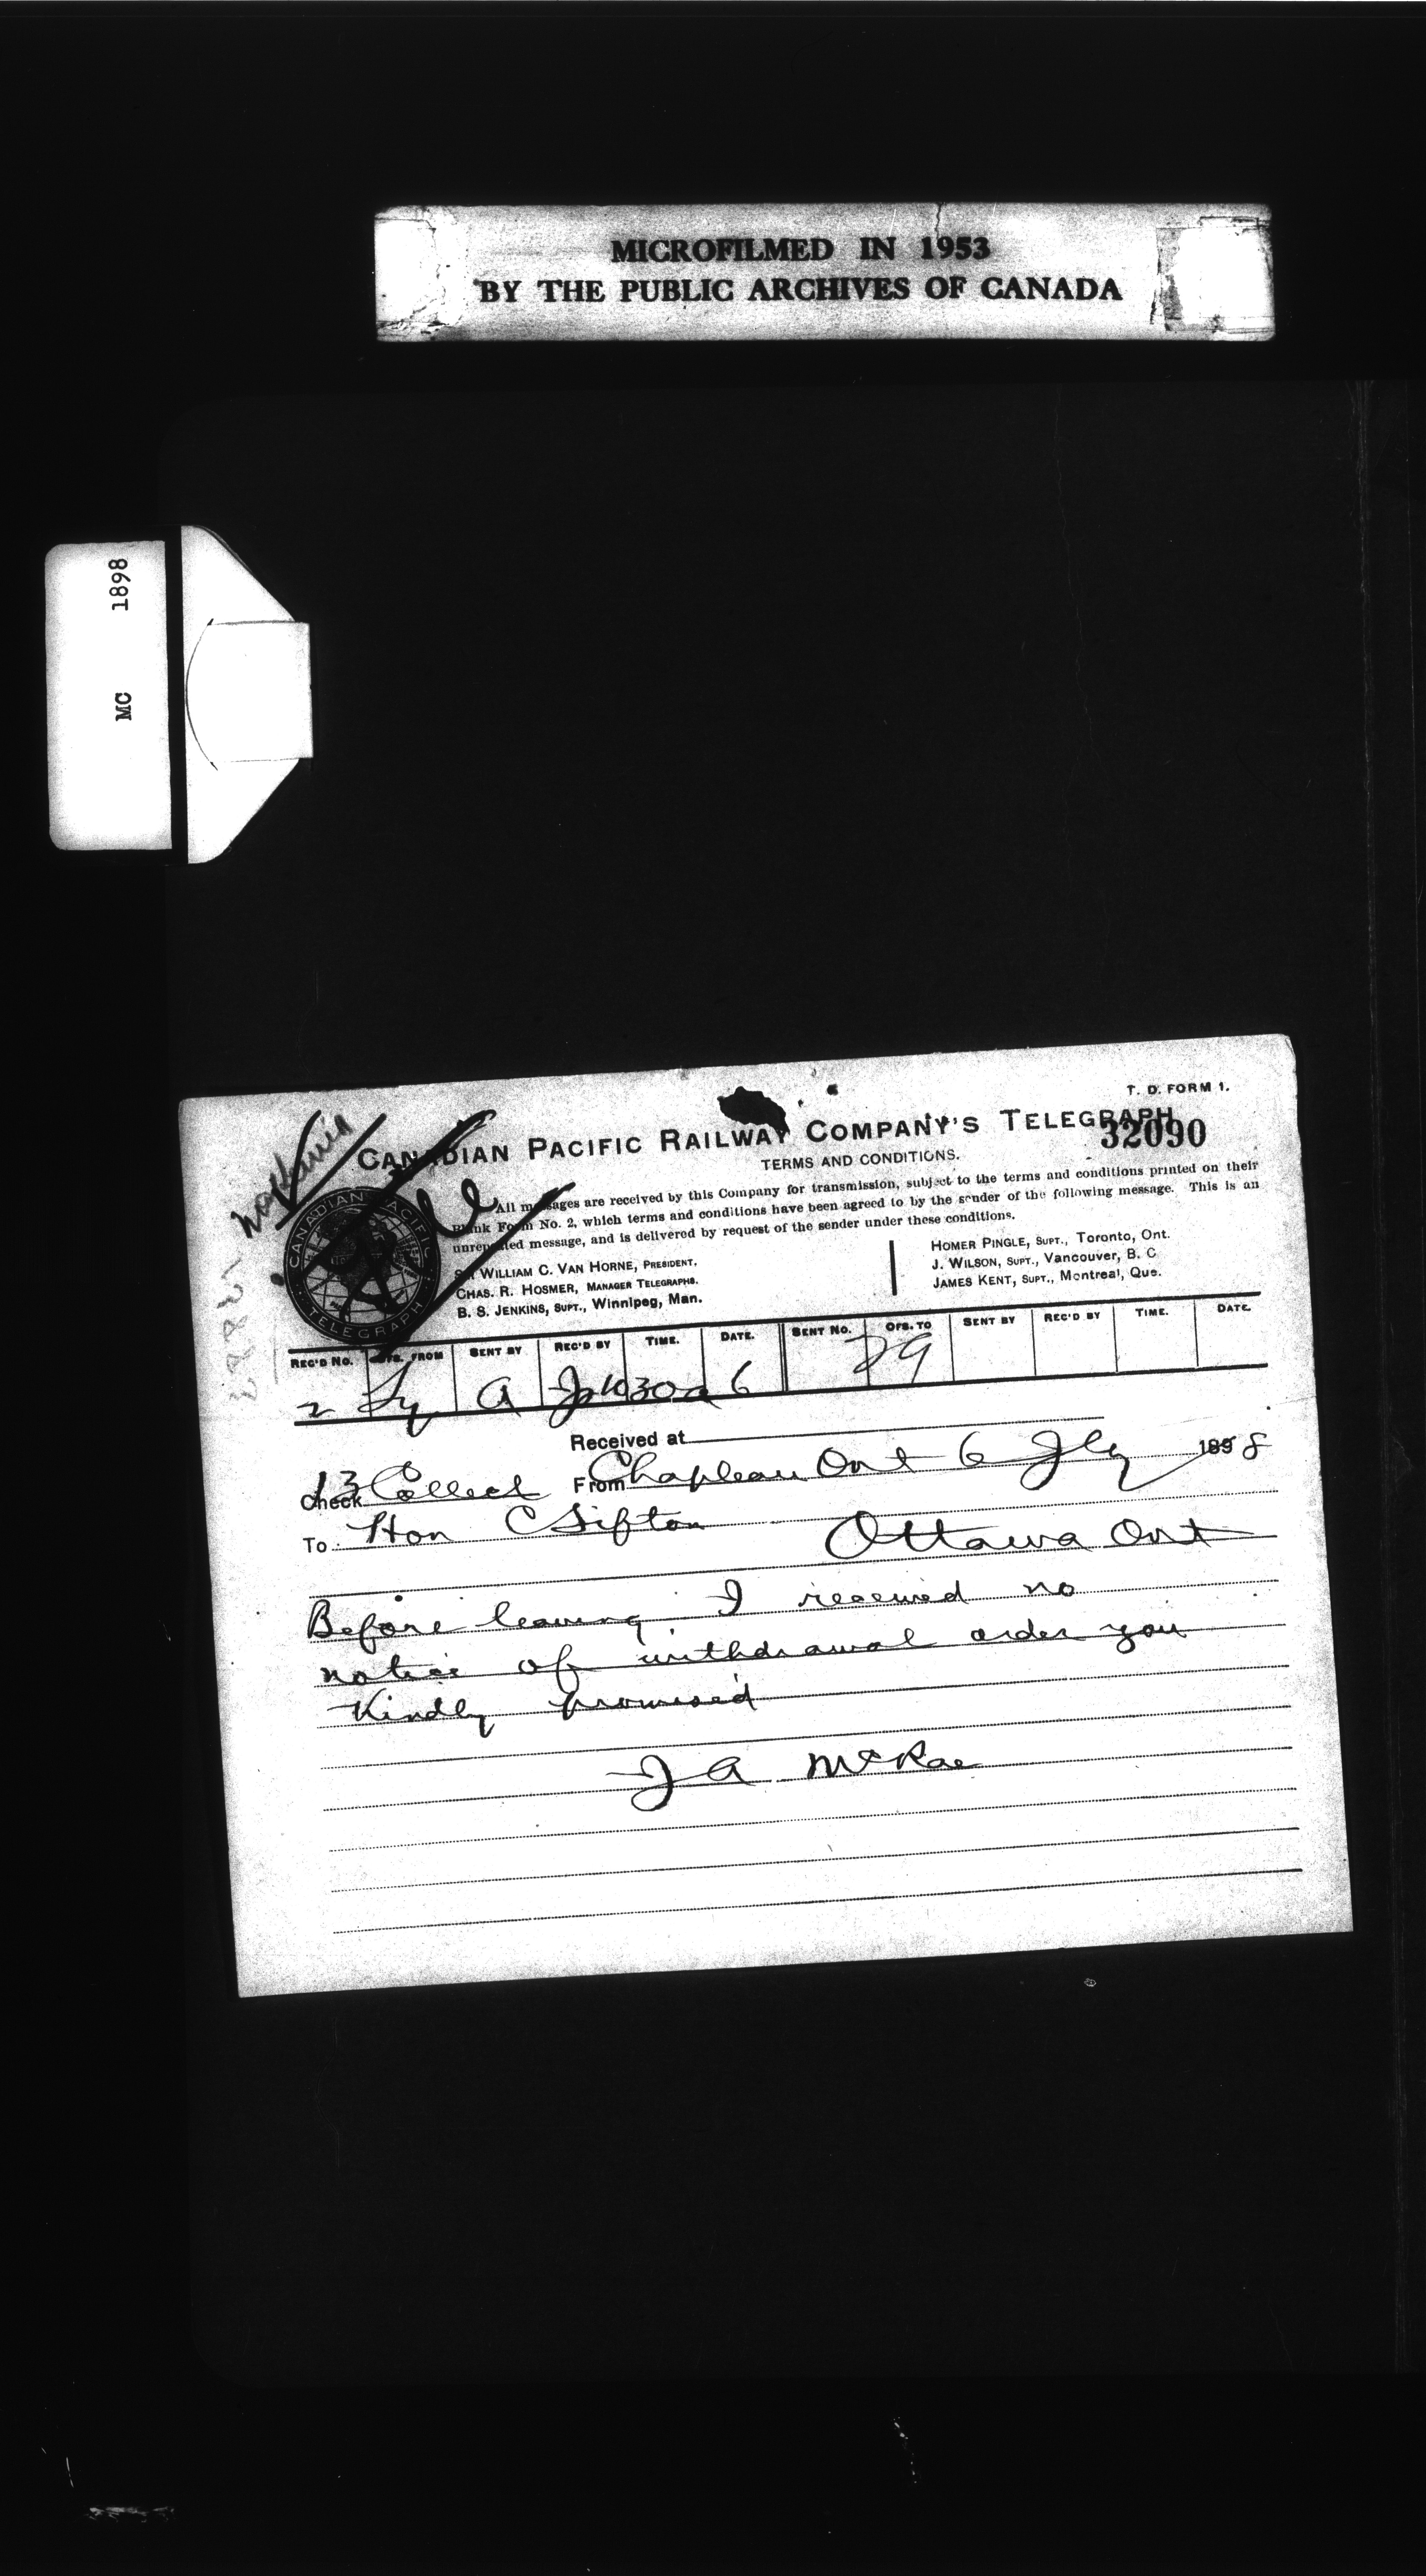 MICROFILMED IN 1953
BY THE PUBLIC ARCHIVES OF CANADA
MC 1898
T. D. FORM 1.
CANADIAN PACIFIC RAILWAY COMPANY'S TELEGRAPH
32090
TERMS AND CONDITIONS.
All messages are received by this Company for transmission, subject to the terms and conditions printed on their
Blank Form No. 2, which terms and conditions have been agreed to by the sender of the following message. This is an
unrepeated message, and is delivered by request of the sender under these conditions.
SIR WILLIAM C. VAN HORNE, PRESIDENT.
CHAS. R. HOSMER, MANAGER TELEGRAPHS.
B. S. JENKINS, SUPT., Winnipeg, Man.
HOMER PINGLE, SUPT., Toronto, Ont.
J. WILSON, SUPT., Vancouver, B. C
JAMES KENT, SUPT., Montreal, Que.
CANADIAN PACIFIC
TELEGRAPH
REC'D No. OFS. FROM SENT BY REC'D BY TIME. DATE. SENT NO. OFS. TO SENT BY REC'D BY TIME. DATE.
2 A 1030a 6 29
Received at
Check 13 Collect From Chapleau Ont 6 Jly 1898
To Hon C Sifton
Ottawa Ont
Before leaving I received no
notice of withdrawal order you
Kindly promised
J A McRae